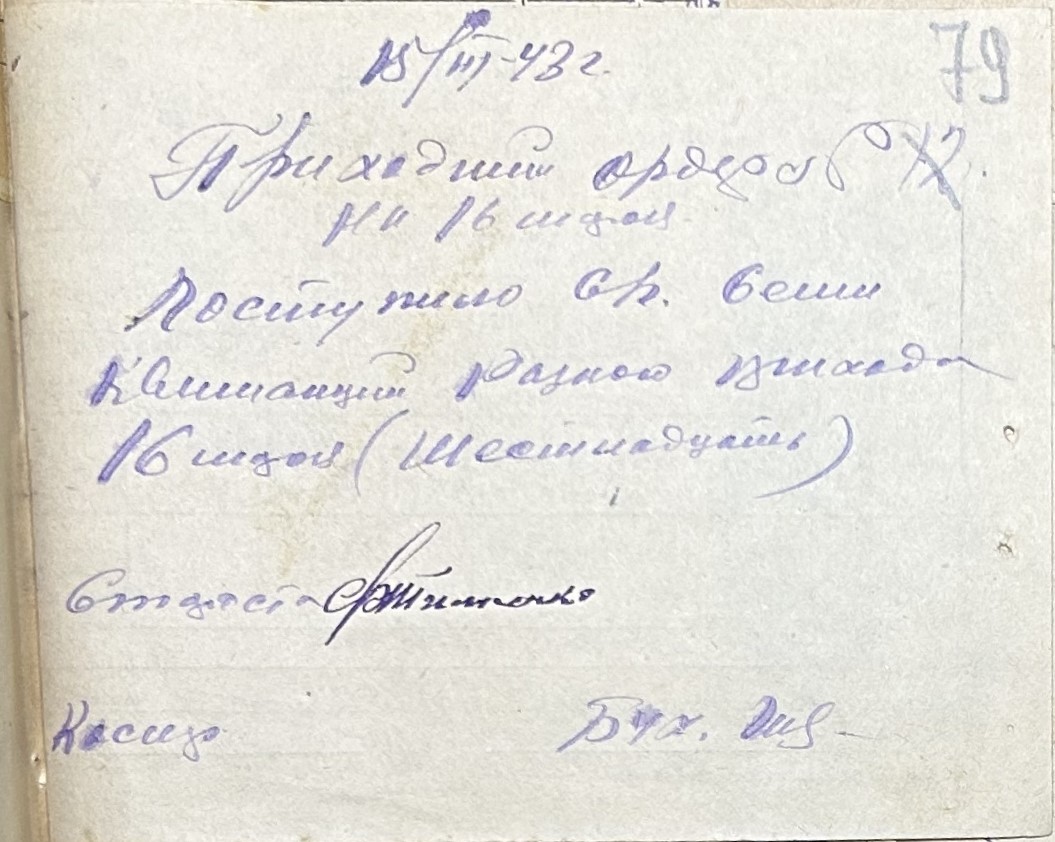 15/III-43 г.
79
Приходний ордер
на 16 штук
Поступило
Квитанций разного прихода
16 штук (Шестнадцать)
Староста
Касир
Бух.